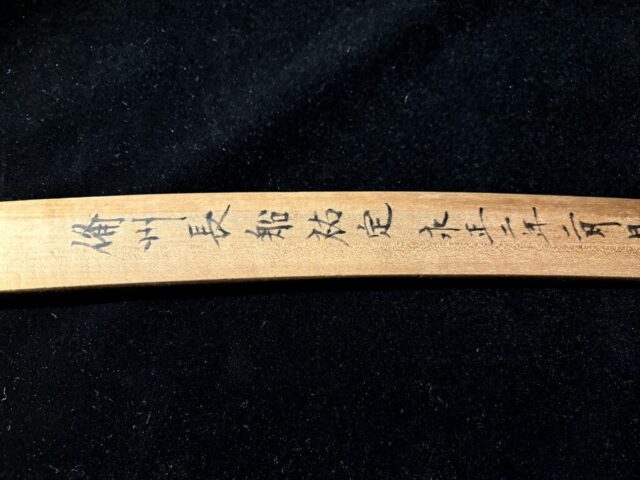 備州長船祐定 永正二年二月日